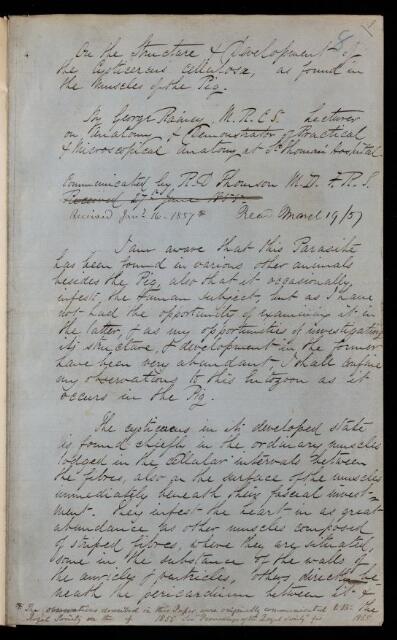 On the Structure & Development of
the Cysticercus cellulosæ, as found in
the Muscles of the Pig.
By George Rainey, M.R.C.S. Lecturer
on Anatomy, & Demonstrator of Practical
& Microscopical Anatomy at St Thomas's Hospital.
Communicated by R.D Thomson M.D. F.R.S.
Received 27th June 1855
Received Jany 16. 1857 * Read March 19/57
I am aware that this Parasite
has been found in various other animals
besides the Pig, also that it occasionally
infests the Human subject, but as I have
not had the opportunity of examining it in
the latter, & as my opportunities of investigating
its structure, & development in the former
have been very abundant, I shall confine
my observations to this Entozoon as it
occurs in the Pig.
The cysticercus in its developed state
is found chiefly in the ordinary muscles
lodged in the cellular intervals between
the fibres, also on the surface of the muscles
immediately beneath their fascial invest-
ment. They infest the heart in as great
abundance as other muscles composed
of striped fibres, where they are situated,
some in the substance of the walls of
the auricles & ventricles, others directly be-
neath the pericardium between it &
the
* The observations described in this Paper were originally communicated to the
Royal Society on the of 1855 See Proceedings of the Royal Society for 1855